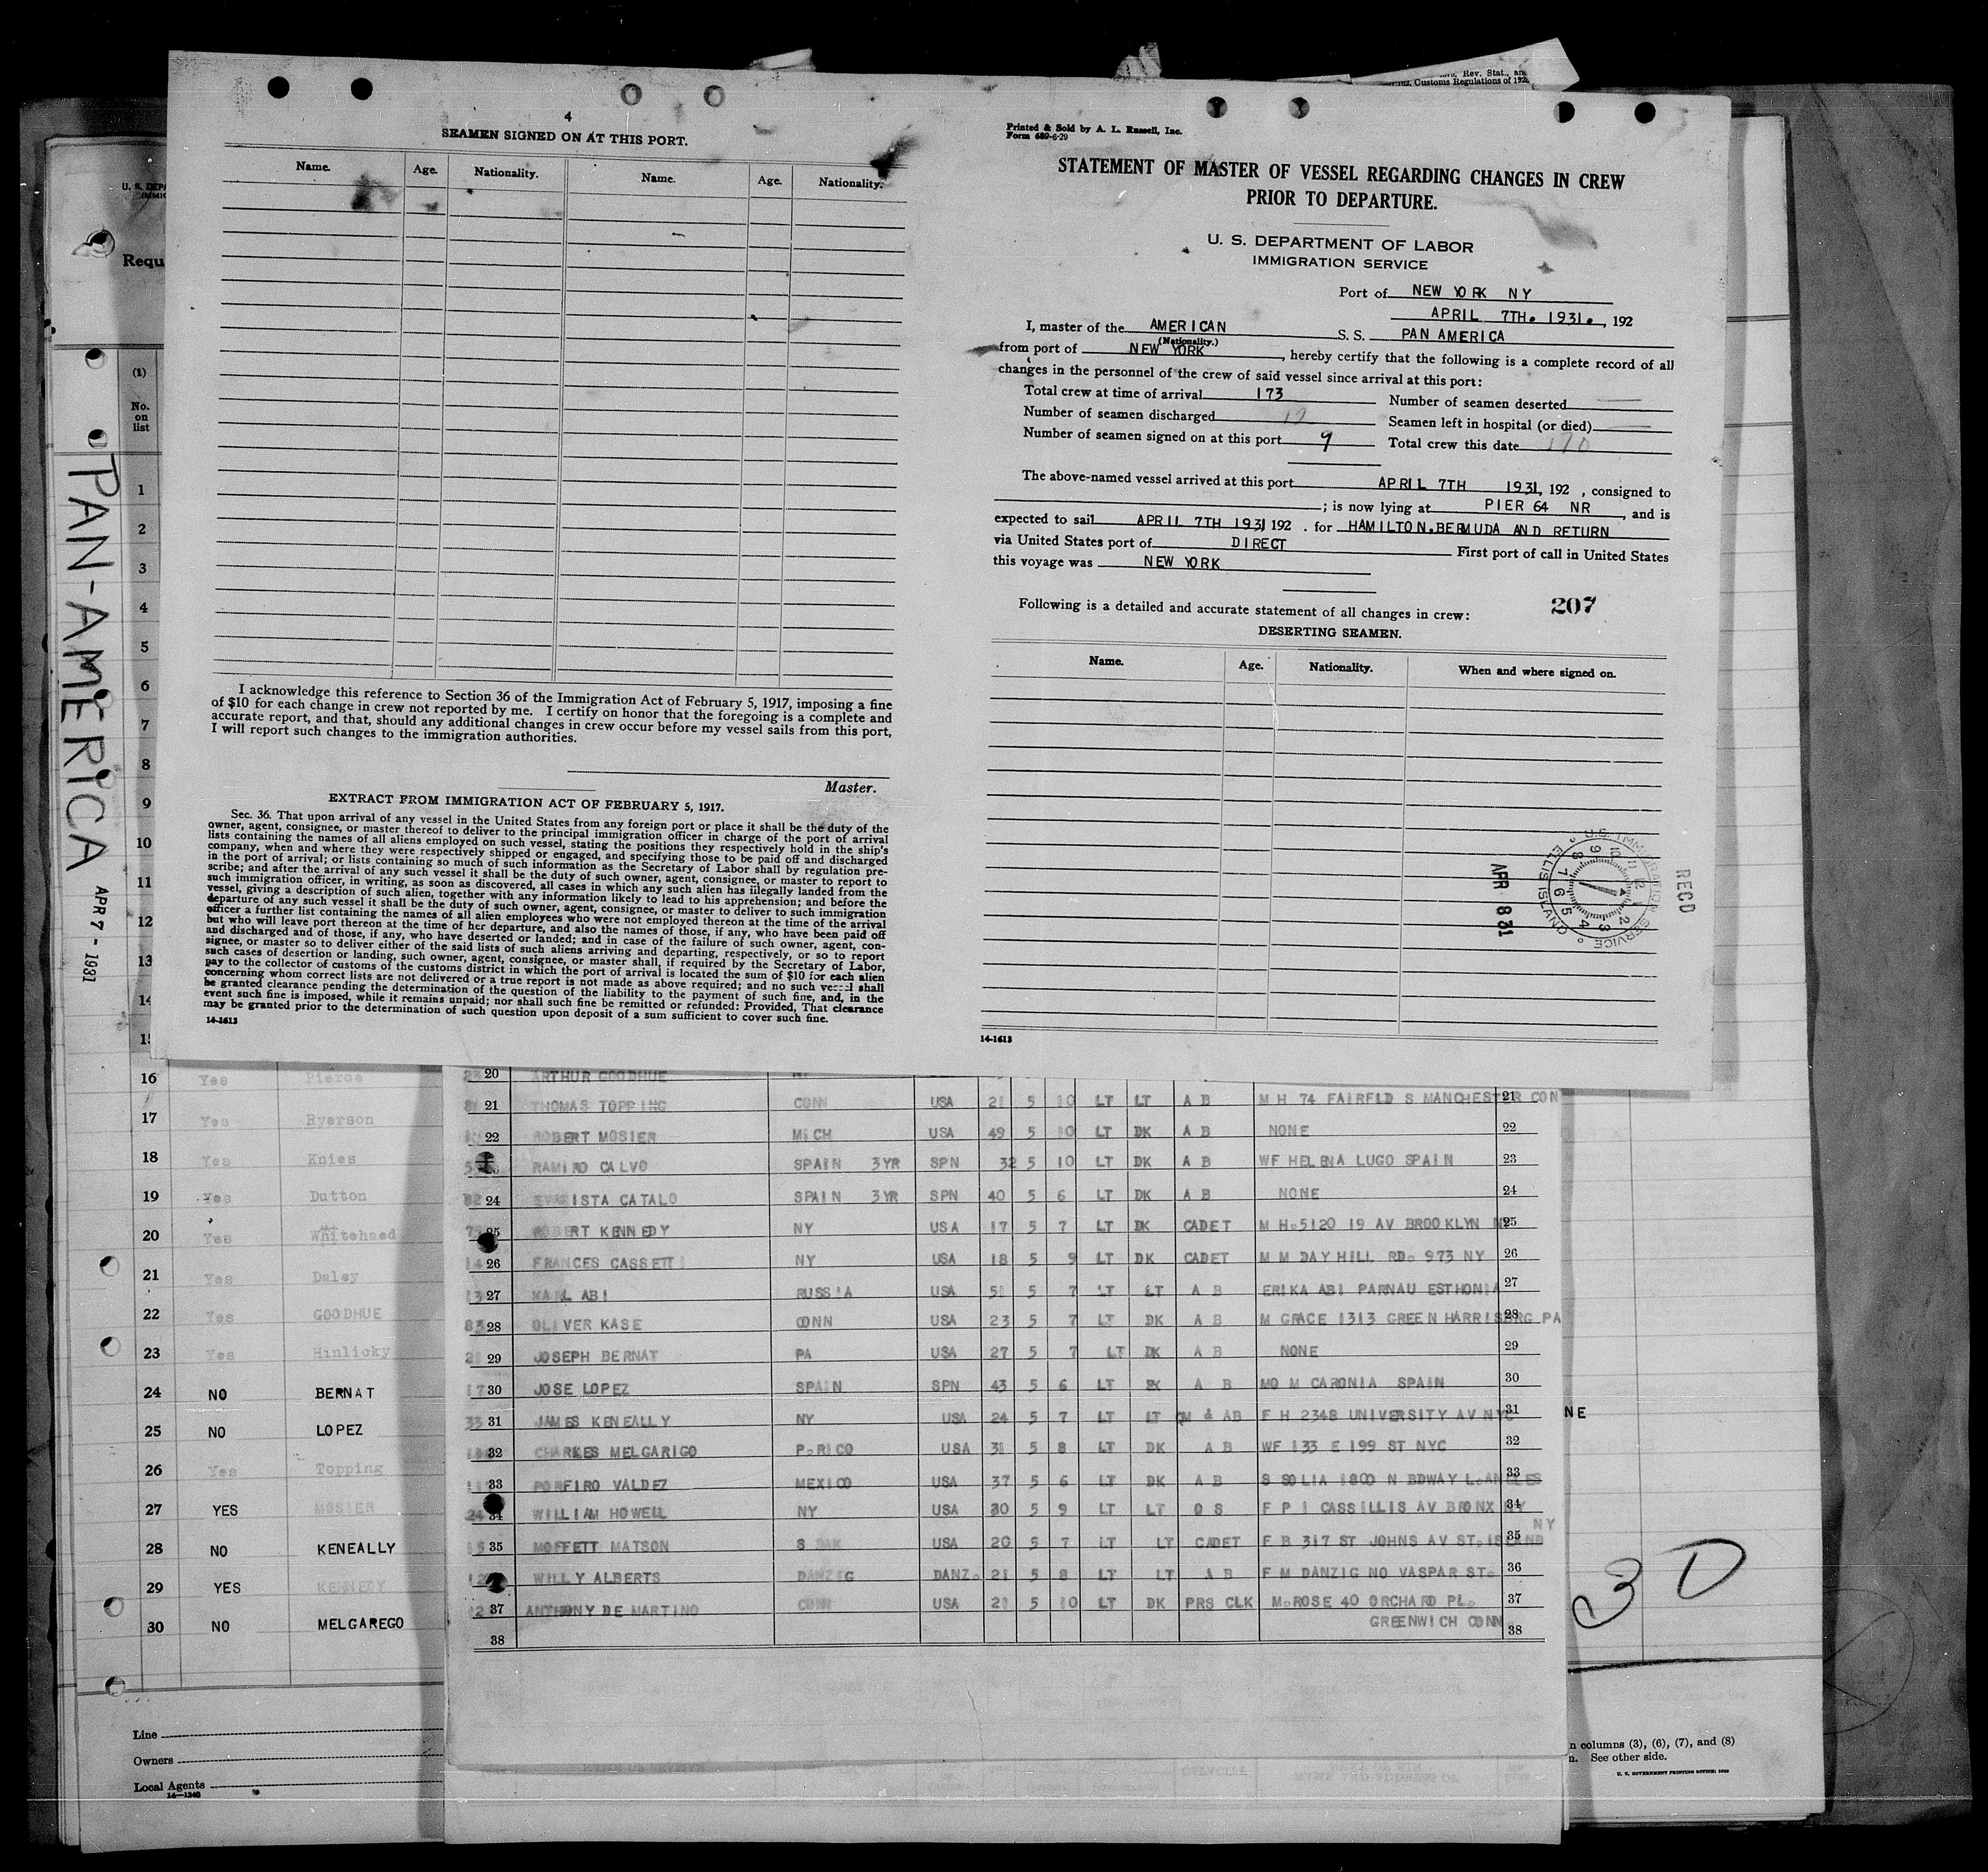 Rev. Stat., and
Customs Regulations of 192
4
SEAMEN SIGNED ON AT THIS PORT.
Name. Age. Nationality. Name. Age. Nationality.
I acknowledge this reference to Section 36 of the Immigration Act of February 5, 1917, imposing a fine
of $10 for each change in crew not reported by me. I certify on honor that the foregoing is a complete and
accurate report, and that, should any additional changes in crew occur before my vessel sails from this port,
I will report such changes to the immigration authorities.
Master.
EXTRACT FROM IMMIGRATION ACT OF FEBRUARY 5, 1917.
Sec. 36. That upon arrival of any vessel in the United States from any foreign port or place it shall be the duty of the
owner, agent, consignee, or master thereof to deliver to the principal immigration officer in charge of the port of arrival
lists containing the names of all aliens employed on such vessel, stating the positions they respectively hold in the ship's
company, when and where they were respectively shipped or engaged, and specifying those to be paid off and discharged
in the port of arrival; or lists containing so much of such information as the Secretary of Labor shall by regulation pre-
scribe; and after the arrival of any such vessel it shall be the duty of such owner, agent, consignee, or master to report to
such immigration officer, in writing, as soon as discovered, all cases in which any such alien has illegally landed from the
vessel, giving a description of such alien, together with any information likely to lead to his apprehension; and before the
departure of any such vessel it shall be the duty of such owner, agent, consignee, or master to deliver to such immigration
officer a further list containing the names of all alien employees who were not employed thereon at the time of the arrival
but who will leave port thereon at the time of her departure, and also the names of those, if any, who have been paid off
and discharged and of those, if any, who have deserted or landed; and in case of the failure of such owner, agent, con-
signee, or master so to deliver either of the said lists of such aliens arriving and departing, respectively, or so to report
such cases of desertion or landing, such owner, agent, consignee, or master shall, if required by the Secretary of Labor,
pay to the collector of customs of the customs district in which the port of arrival is located the sum of $10 for each alien
concerning whom correct lists are not delivered or a true report is not made as above required; and no such vessel shall
be granted clearance pending the determination of the question of the liability to the payment of such fine, and, in the
event such fine is imposed, while it remains unpaid; nor shall such fine be remitted or refunded: Provided, That clearance
may be granted prior to the determination of such question upon deposit of a sum sufficient to cover such fine.
14-1613
Printed & Sold by A. L. Russell, Inc.
Form 689-6-29
STATEMENT OF MASTER OF VESSEL REGARDING CHANGES IN CREW
PRIOR TO DEPARTURE.
U. S. DEPARTMENT OF LABOR
IMMIGRATION SERVICE
Port of NEW YORK NY
APRIL 7TH. 1931. , 192
I, master of the AMERICAN S. S. PAN AMERICA
(Nationality.)
from port of NEW YORK , hereby certify that the following is a complete record of all
changes in the personnel of the crew of said vessel since arrival at this port:
Total crew at time of arrival 173 Number of seamen deserted
Number of seamen discharged 12 Seamen left in hospital (or died)
Number of seamen signed on at this port 9 Total crew this date 170
The above-named vessel arrived at this port APRIL 7TH 1931, 192 , consigned to
; is now lying at PIER 64 NR , and is
expected to sail APRIL 7TH 1931 192 . for HAMILTON.BERMUDA AND RETURN
via United States port of DIRECT First port of call in United States
this voyage was NEW YORK
Following is a detailed and accurate statement of all changes in crew: 207
DESERTING SEAMEN.
Name. Age. Nationality. When and where signed on.
RECD
U.S. IMMIGRATION SERVICE
ELLIS ISLAND
APR 8 31
14-1613
U. S. DEPA
IMMIG
Requ
(1)
No.
on
list
PAN-AMERICA
APR 7 - 1931
1
2
3
4
5
6
7
8
9
10
11
12
13
14
15
16 Yes Pierce
17 Yes Ryerson
18 Yes Knies
19 Yes Dutton
20 Yes Whitehaed
21 Yes Daley
22 Yes GOODHUE
23 Yes Hinlicky
24 NO BERNAT
25 NO LOPEZ
26 Yes Topping
27 YES MOSIER
28 NO KENEALLY
29 YES KENNEDY
30 NO MELGAREGO
Line
Owners
Local Agents
14—1240
20 ARTHUR GOODHUE
21 THOMAS TOPPING CONN USA 21 5 10 LT LT A B M H 74 FAIRFLD S MANCHESTER CON 21
22 ROBERT MOSIER MICH USA 49 5 10 LT DK A B NONE 22
RAMIRO CALVO SPAIN 3YR SPN 32 5 10 LT DK A B WF HELENA LUGO SPAIN 23
24 EVARISTA CATALO SPAIN 3YR SPN 40 5 6 LT DK A B NONE 24
25 ROBERT KENNEDY NY USA 17 5 7 LT DK CADET M H.5120 19 AV BROOKLYN 25
26 FRANCES CASSETTI NY USA 18 5 9 LT DK CADET M M DAY HILL RD. 973 NY 26
27 KARL ABI RUSSIA USA 51 5 7 LT LT A B ERIKA ABI PARNAU ESTHONIA 27
28 OLIVER KASE CONN USA 23 5 7 LT DK A B M GRACE 1313 GREEN HARRISBRG PA 28
29 JOSEPH BERNAT PA USA 27 5 7 LT DK A B NONE 29
30 JOSE LOPEZ SPAIN SPN 43 5 6 LT DK A B MO M CARONIA SPAIN 30
31 JAMES KENEALLY NY USA 24 5 7 LT LT QM & AB F H 2348 UNIVERSITY AV NYC 31
NE
32 CHARLES MELGARIGO P.RICO USA 31 5 8 LT DK A B WF 133 E 199 ST NYC 32
33 PORFIRO VALDEZ MEXICO USA 37 5 6 LT DK A B S SOLIA 1800 N BDWAY L.ANGLES 33
34 WILLIAM HOWELL NY USA 30 5 9 LT LT O S F P 1 CASSILLIS AV BRONX NY 34
NY
35 MOFFETT MATSON S DAK USA 20 5 7 LT LT CADET F B 317 ST JOHNS AV ST.ISLAND 35
WILLY ALBERTS DANZIG DANZ. 21 5 8 LT LT A B F M DANZIG NO VASPAR ST. 36
37 ANTHONY DE MARTINO CONN USA 21 5 10 LT DK PRS CLK M.ROSE 40 ORCHARD PL. 37
GREENWICH CONN
38 38
3 D
n columns (3), (6), (7), and (8)
n. See other side.
U. S. GOVERNMENT PRINTING OFFICE: 1930